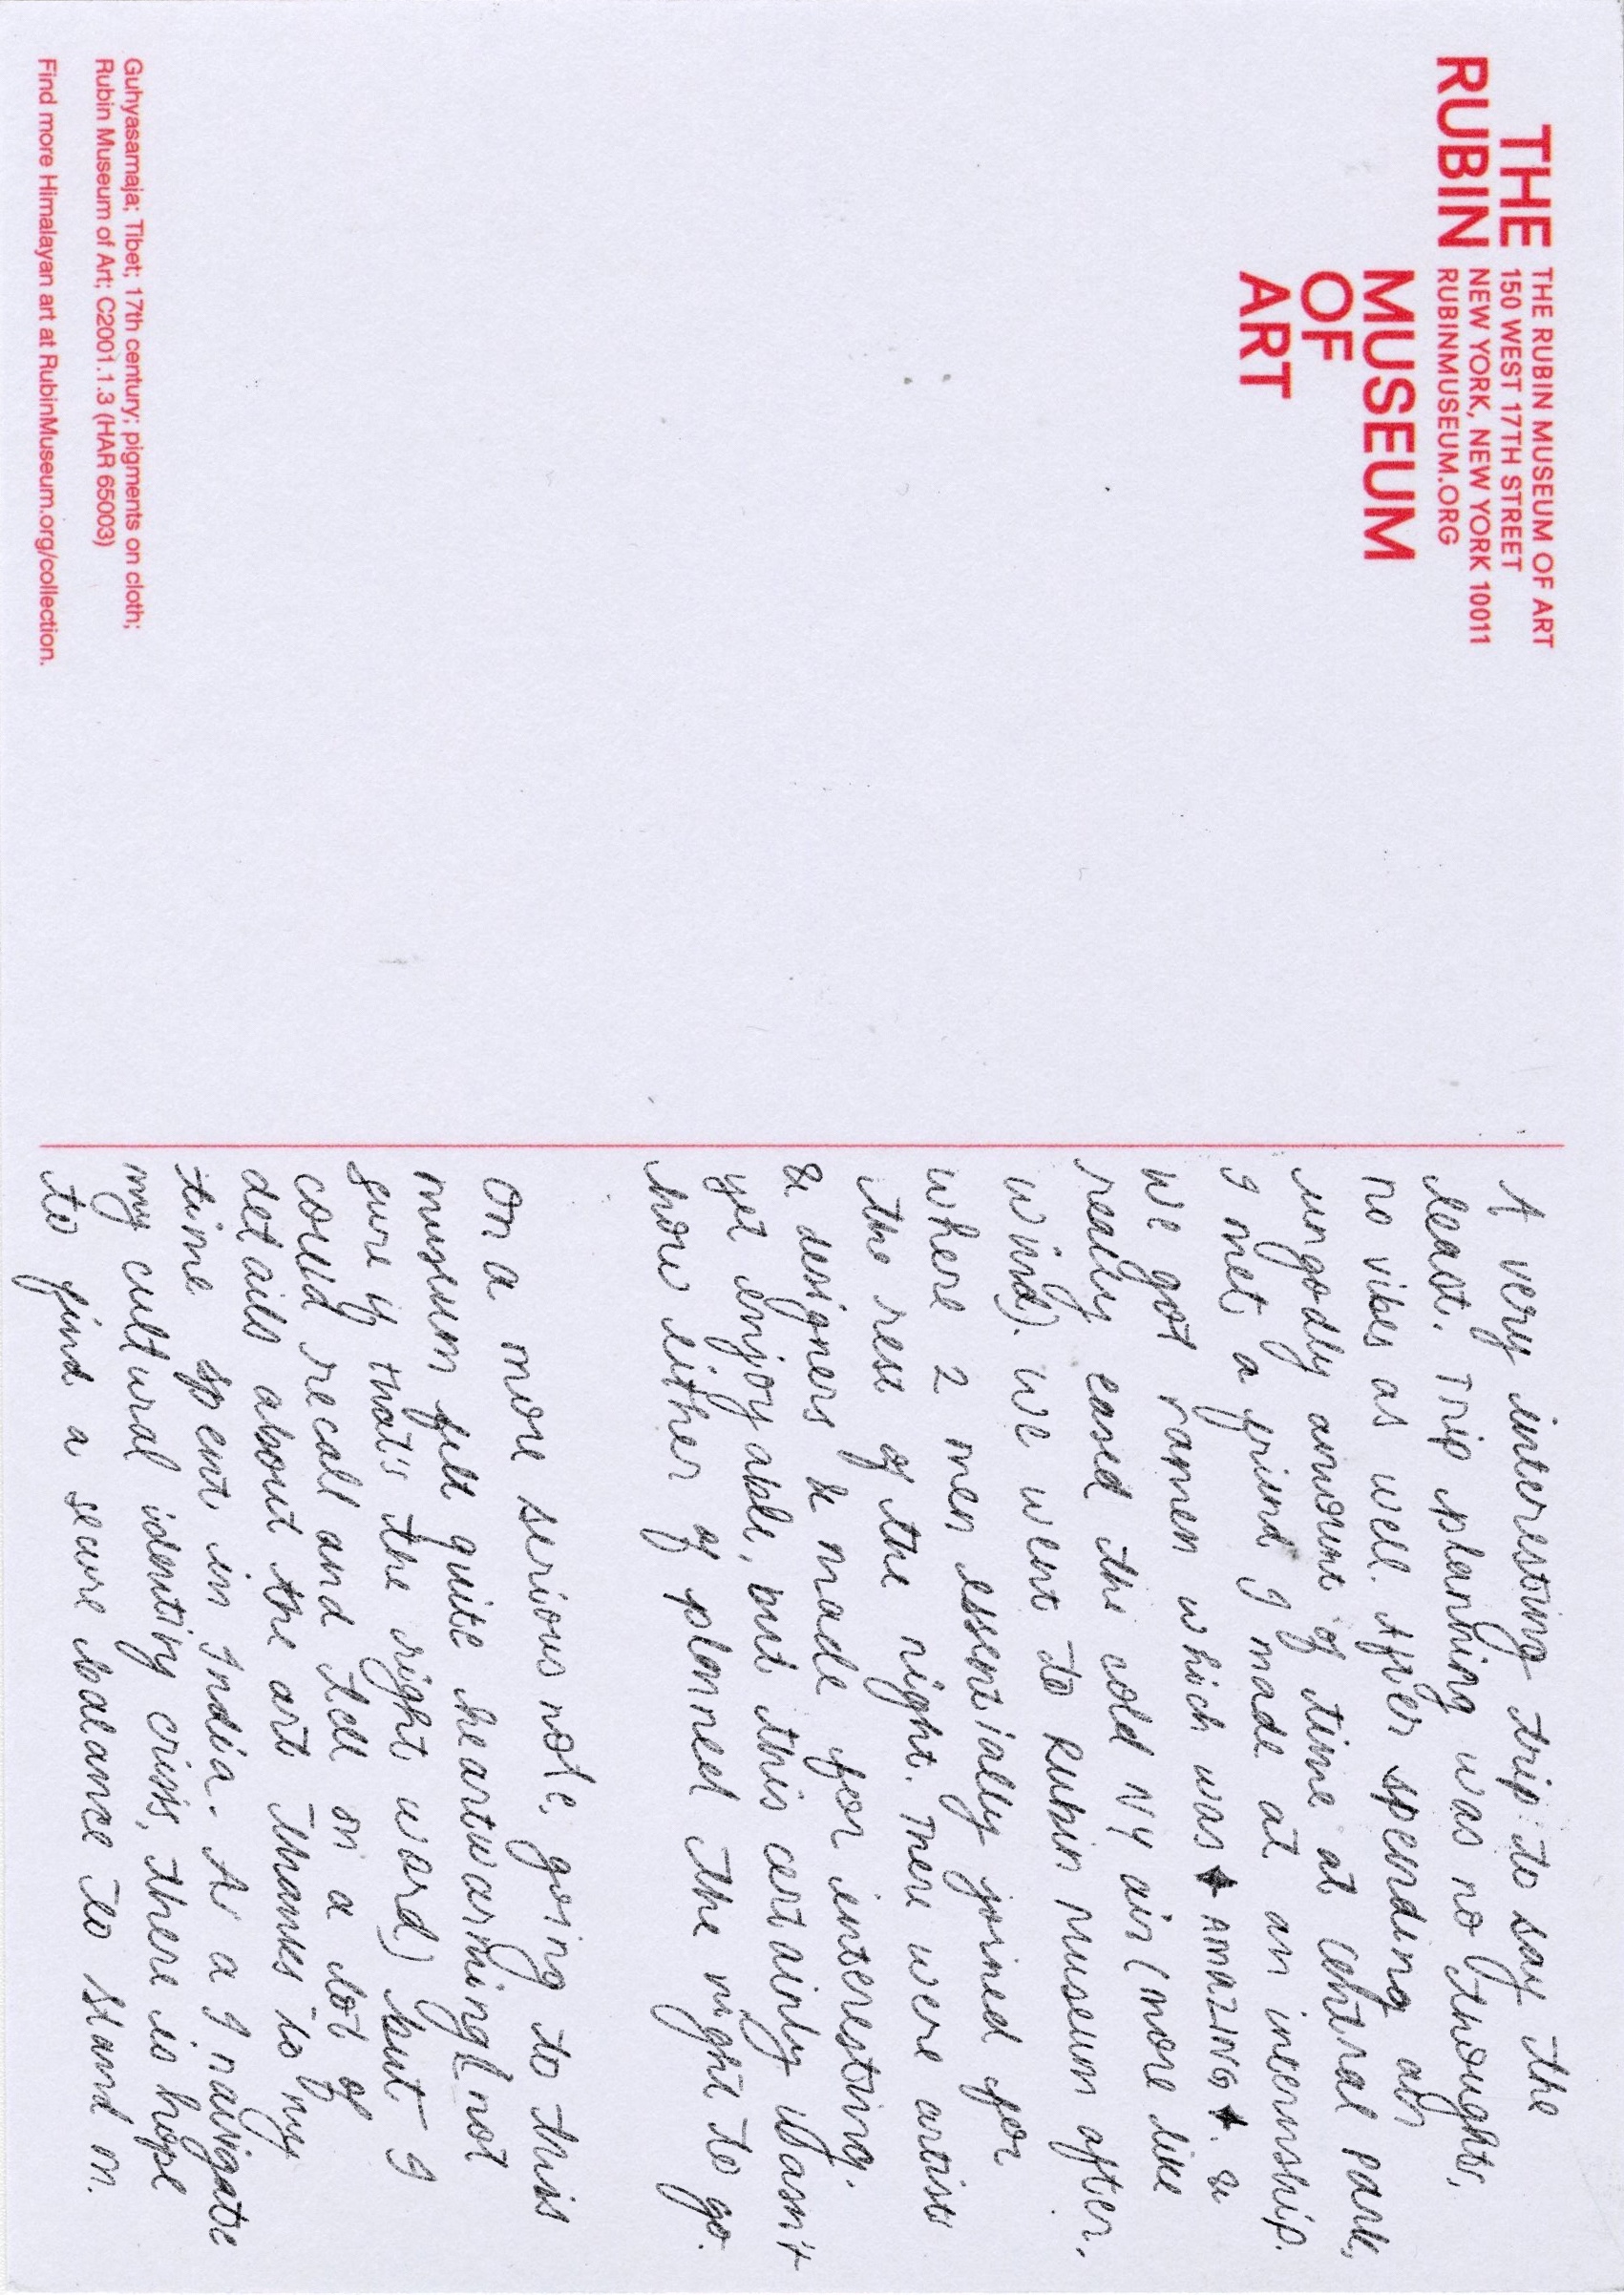 THE
RUBIN
MUSEUM
OF
ART
THE RUBIN MUSEUM OF ART
150 WEST 17TH STREET
NEW YORK, NEW YORK 10011
RUBINMUSEUM.ORG
Guhyasamaja; Tibet; 17th century; pigments on cloth;
Rubin Museum of Art; C2001.1.3 (HAR 65003)
Find more Himalayan art at RubinMuseum.org/collection.
A very interesting trip to say the
least. Trip planning was no thoughts,
no vibes as well. After spending an
ungodly amount of time at central park,
I met a friend I made at an internship.
We got ramen which was ✦ AMAZING ✦. &
really eased the cold NY air (more like
wind). We went to Rubin Museum after,
where 2 men essentially joined for
the rest of the night. There were artists
& designers & made for interesting.
yet enjoyable, but this certainly wasn't
how either of planned the night to go.
On a more serious note, going to this
museum felt quite heartwarming (not
sure if that's the right word) but I
could recall and tell on a lot of
details about the art thanks to my
time spent in India. As a I navigate
my cultural identity crisis, there is hope
to find a secure balance to stand on.